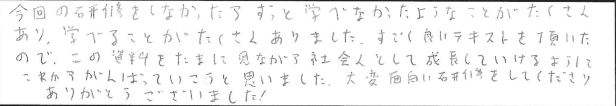 今回の研修をしなかったらずっと学べなかったようなことがたくさん
あり、学べることがたくさんありました。すごく良いテキストを頂いた
ので、この資料をたまに見ながら社会人として成長していけるように
これからがんばっていこうと思いました。大変面白い研修をしてくださり
ありがとうございました!